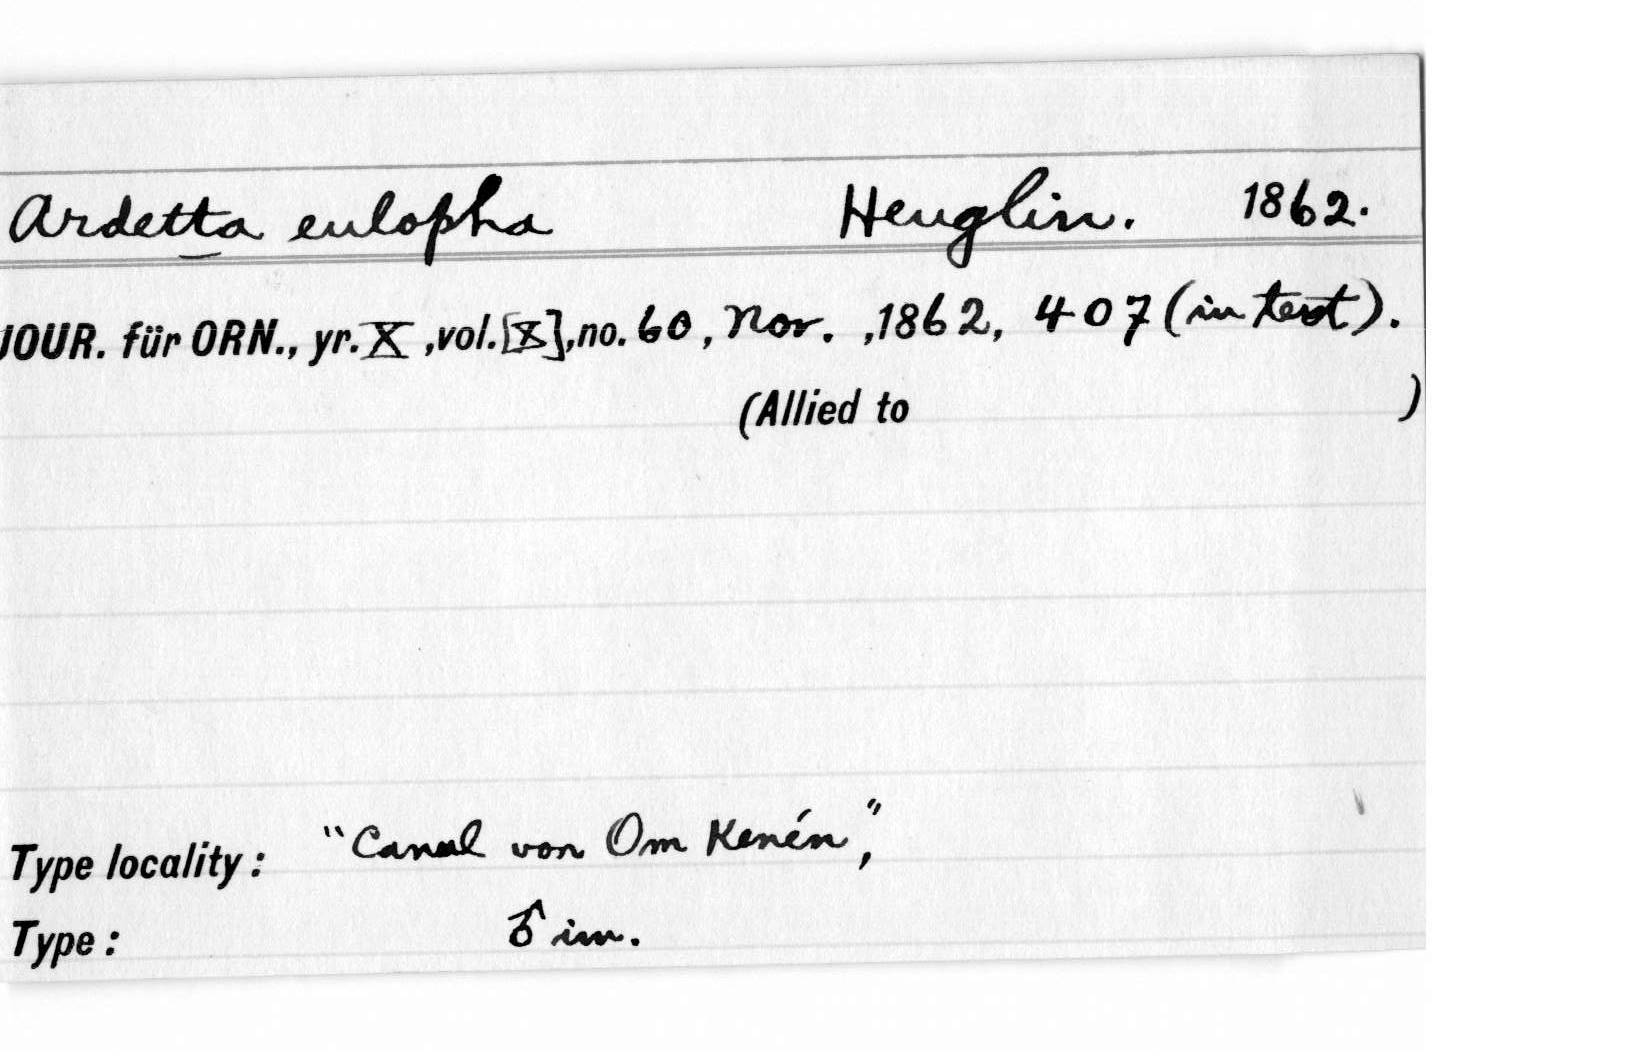 Ardetta eulopha Heuglin. 1862.
JOUR. für ORN., yr. X, vol. [X], no. 60, Nov. ,1862, 407 (in text).
(Allied to )
Type locality: "Canal von Om Kenén",
Type: ♂ im.